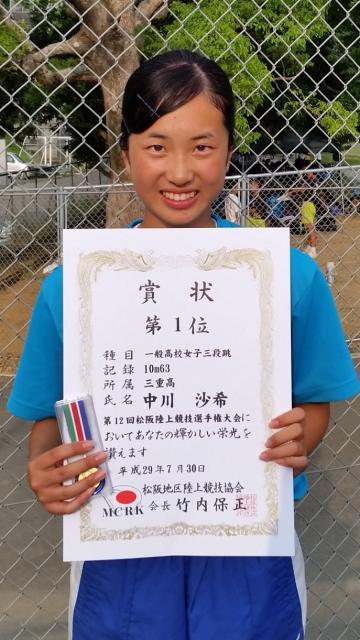 賞状
第1位
種目 一般高校女子三段跳
記録 10m63
所属 三重高
氏名 中川 沙希
第12回松阪陸上競技選手権大会に
おいてあなたの輝かしい栄光を
讃えます
平成29年7月30日
松阪地区陸上競技協会
MCRK 会長 竹内保正